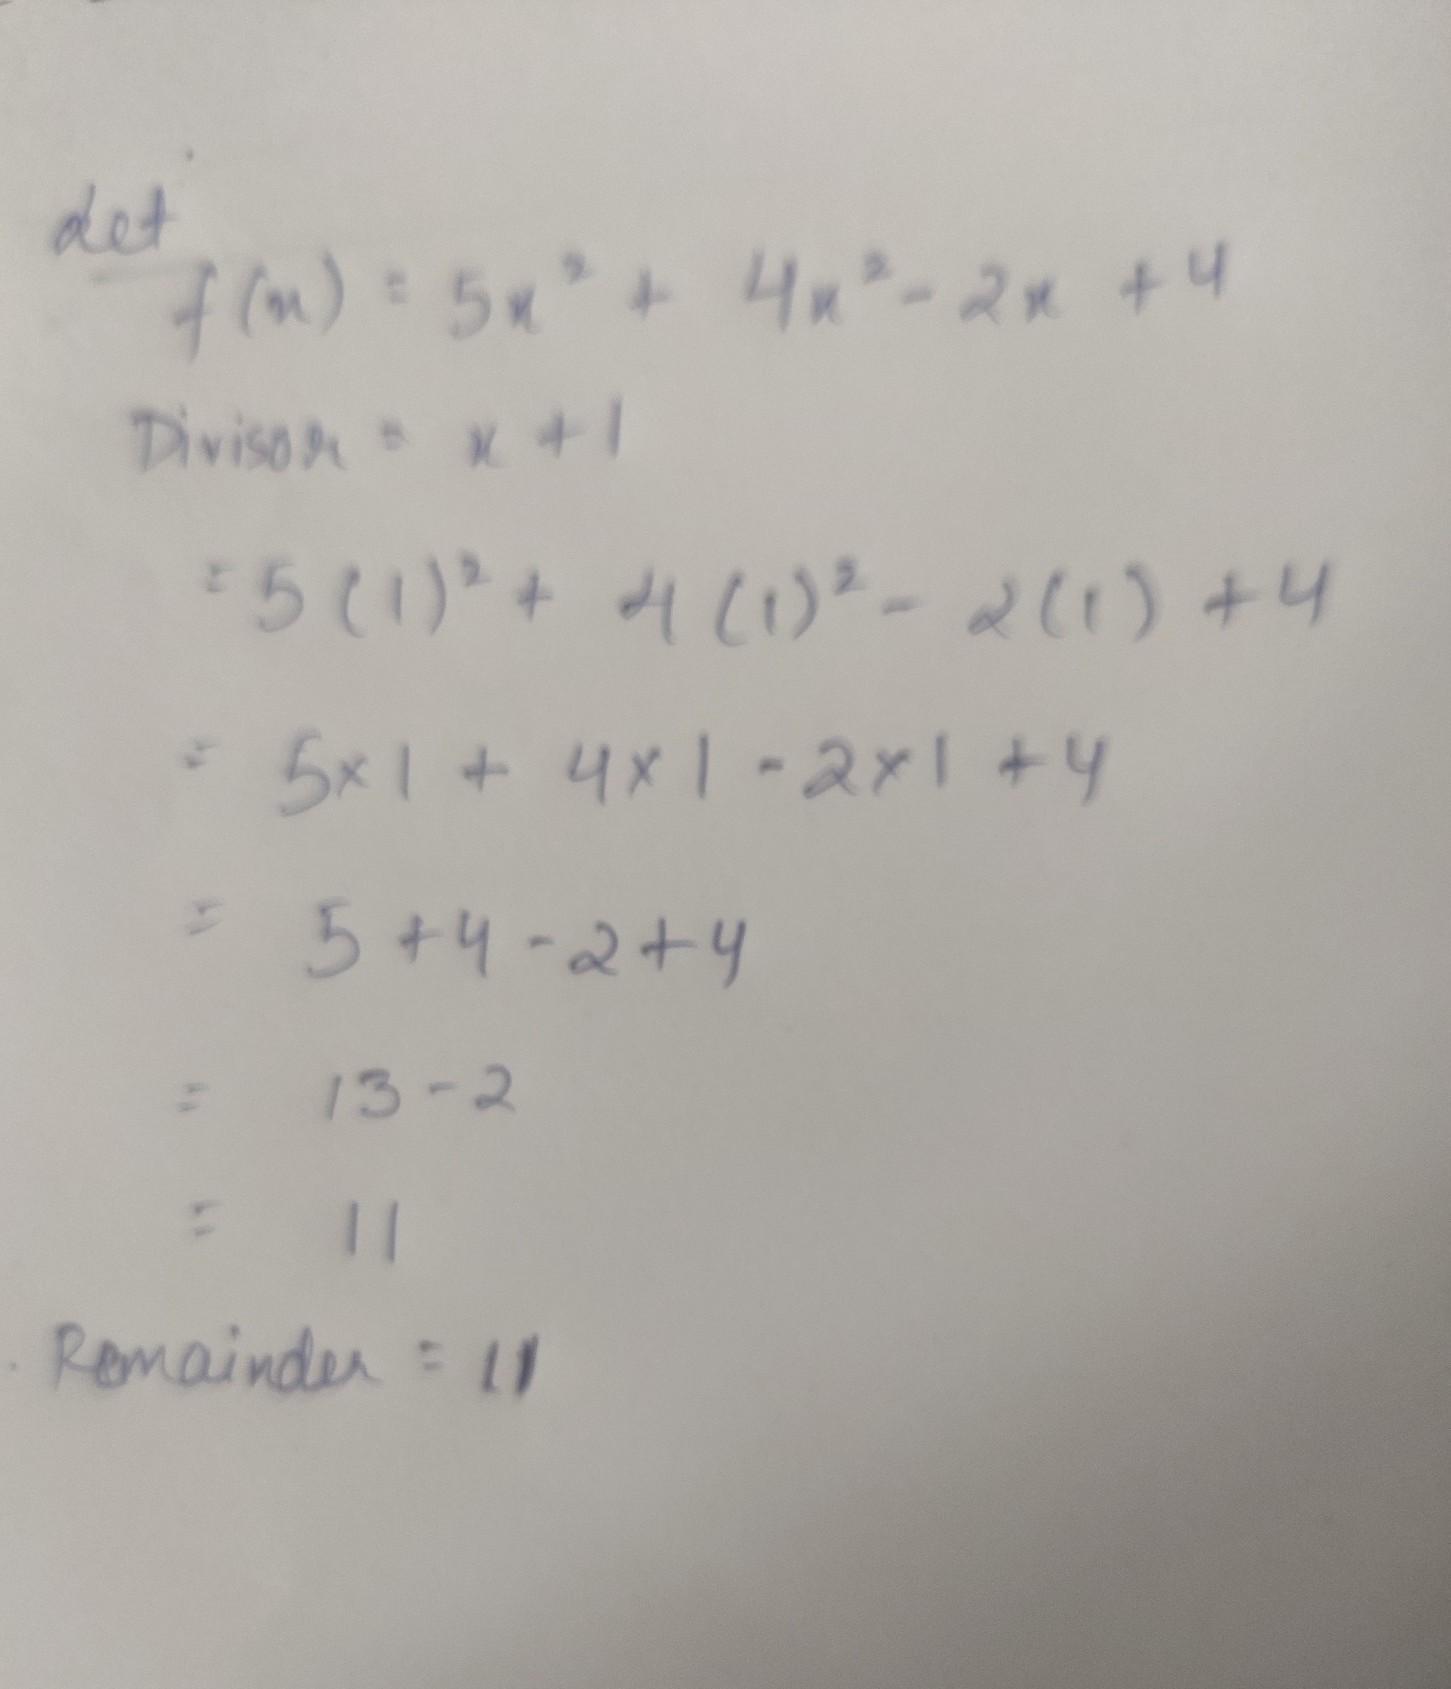 Let
f(x) = 5x² + 4x² - 2x + 4
Divisor = x + 1
= 5(1)² + 4(1)² - 2(1) + 4
= 5×1 + 4×1 - 2×1 + 4
= 5 + 4 - 2 + 4
= 13 - 2
= 11
Remainder = 11